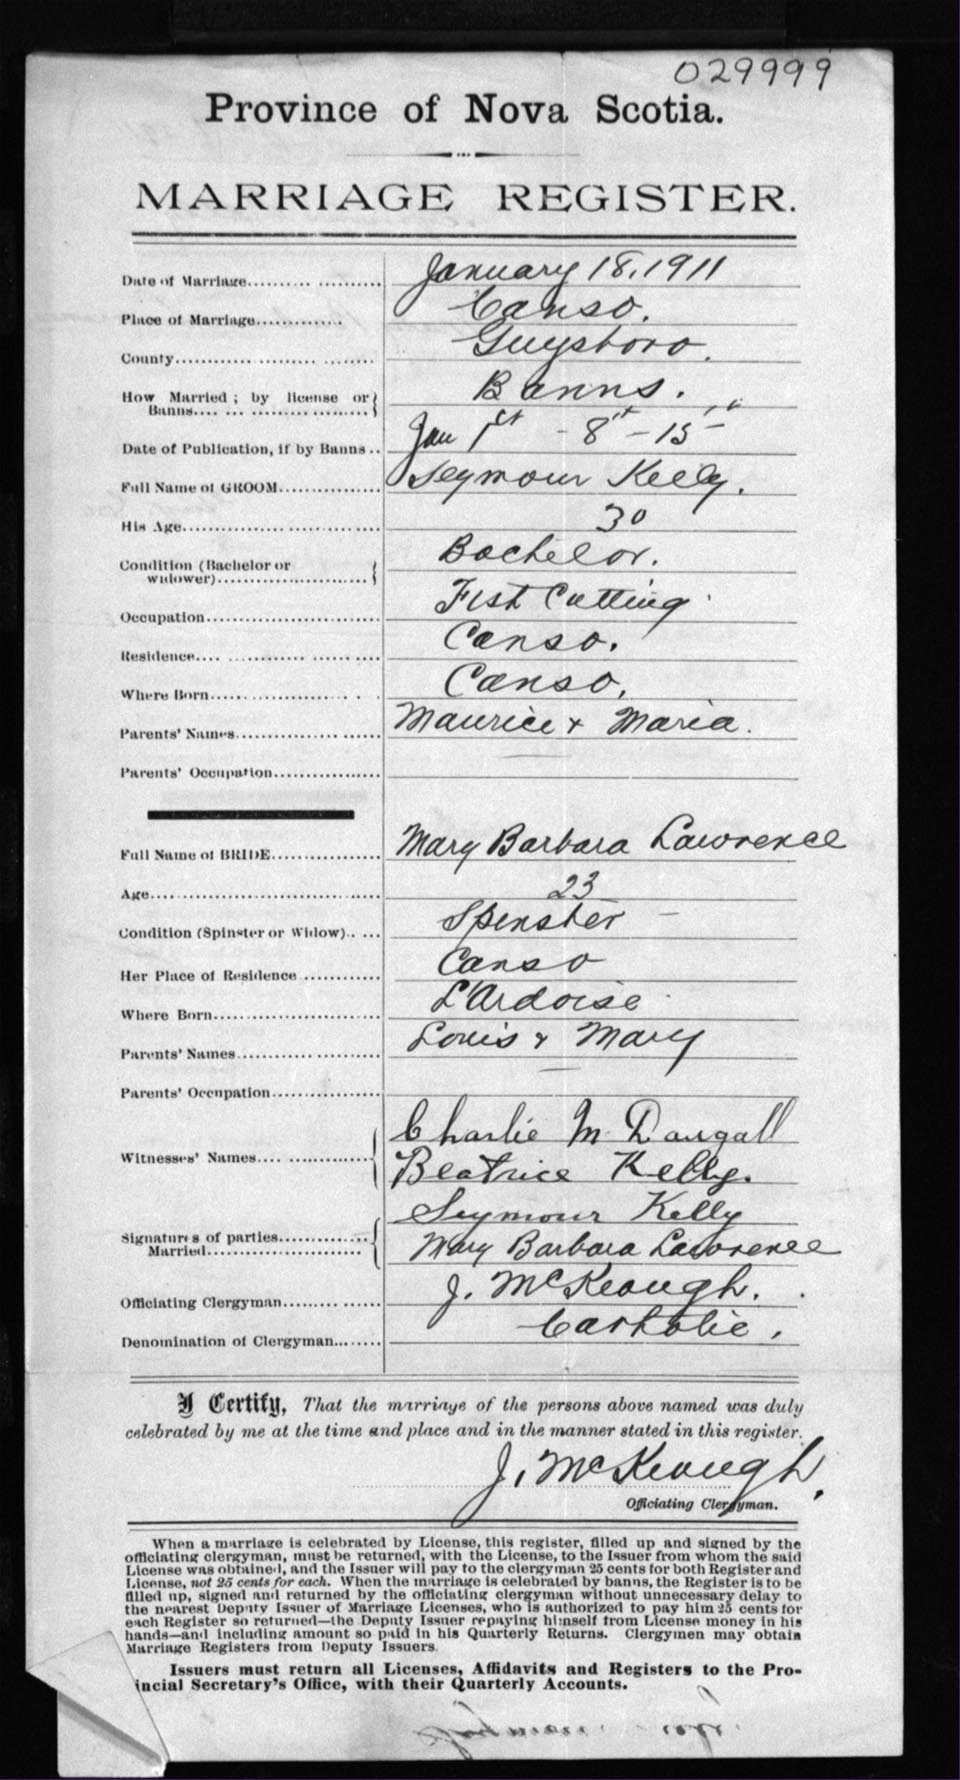 029999
Province of Nova Scotia.
MARRIAGE REGISTER.
Date of Marriage.......... January 18, 1911
Place of Marriage............. Canso.
County.............................. Guysboro.
How Married ; by license or
Banns.... ... ................... Banns.
Date of Publication, if by Banns .. Jan 1st - 8th - 15th
Full Name of GROOM................. Seymour Kelly.
His Age................................ 30
Condition (Bachelor or
widower)......................... Bachelor.
Occupation............................. Fish Cutting
Residence.... .......................... Canso.
Where Born........................... Canso.
Parents' Names....................... Maurice & Maria.
Parents' Occupation.................
Full Name of BRIDE................ Mary Barbara Lawrence
Age..................................... 23
Condition (Spinster or Widow).. ... Spinster
Her Place of Residence ............ Canso
Where Born.......................... L'Ardoise
Parents' Names....................... Louis & Mary
Parents' Occupation.................
Witnesses' Names.... ............... Charlie McDougall
Beatrice Kelly.
Seymour Kelly
Signatures of parties..............
Married........................ Mary Barbara Lawrence
Officiating Clergyman............... J. McKeough.
Denomination of Clergyman........ Catholic.
I Certify, That the marriage of the persons above named was duly
celebrated by me at the time and place and in the manner stated in this register.
J. McKeough.
Officiating Clergyman.
When a marriage is celebrated by License, this register, filled up and signed by the
officiating clergyman, must be returned, with the License, to the Issuer from whom the said
License was obtained, and the Issuer will pay to the clergyman 25 cents for both Register and
License, not 25 cents for each. When the marriage is celebrated by banns, the Register is to be
filled up, signed and returned by the officiating clergyman without unnecessary delay to
the nearest Deputy Issuer of Marriage Licenses, who is authorized to pay him 25 cents for
each Register so returned—the Deputy Issuer repaying himself from License money in his
hands—and including amount so paid in his Quarterly Returns. Clergymen may obtain
Marriage Registers from Deputy Issuers.
Issuers must return all Licenses, Affidavits and Registers to the Pro-
incial Secretary's Office, with their Quarterly Accounts.